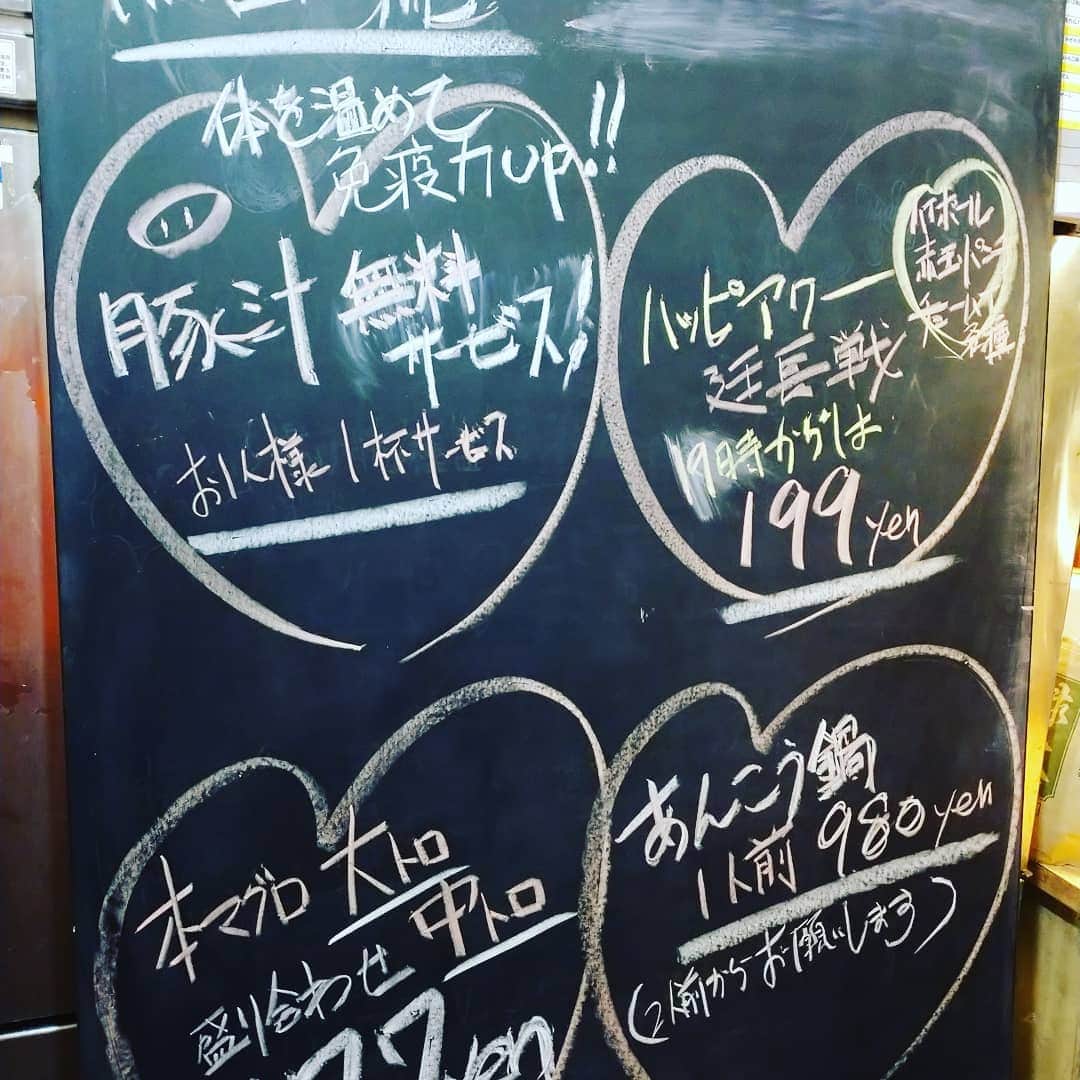 体を温めて
免疫力up!!
豚汁 無料
サービス!
お1人様 1杯サービス
ハイボール
ハッピアワー
延長戦
19時からは
199yen
本マグロ 大トロ
中トロ
盛り合わせ
77yen
あんこう鍋
1人前 980yen
(2人前からお願いします)